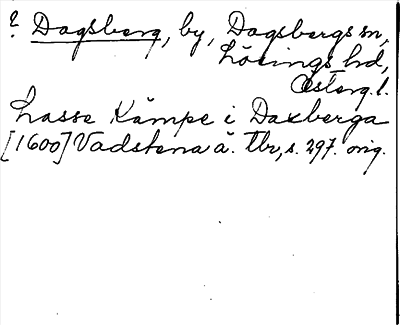 ? Dagsberg, by, Dagsbergs sn,
Lösings hd,
Österg. l.
Lasse Kämpe i Daxberga
[1600] Vadstena ä. Tbr, s. 297. orig.